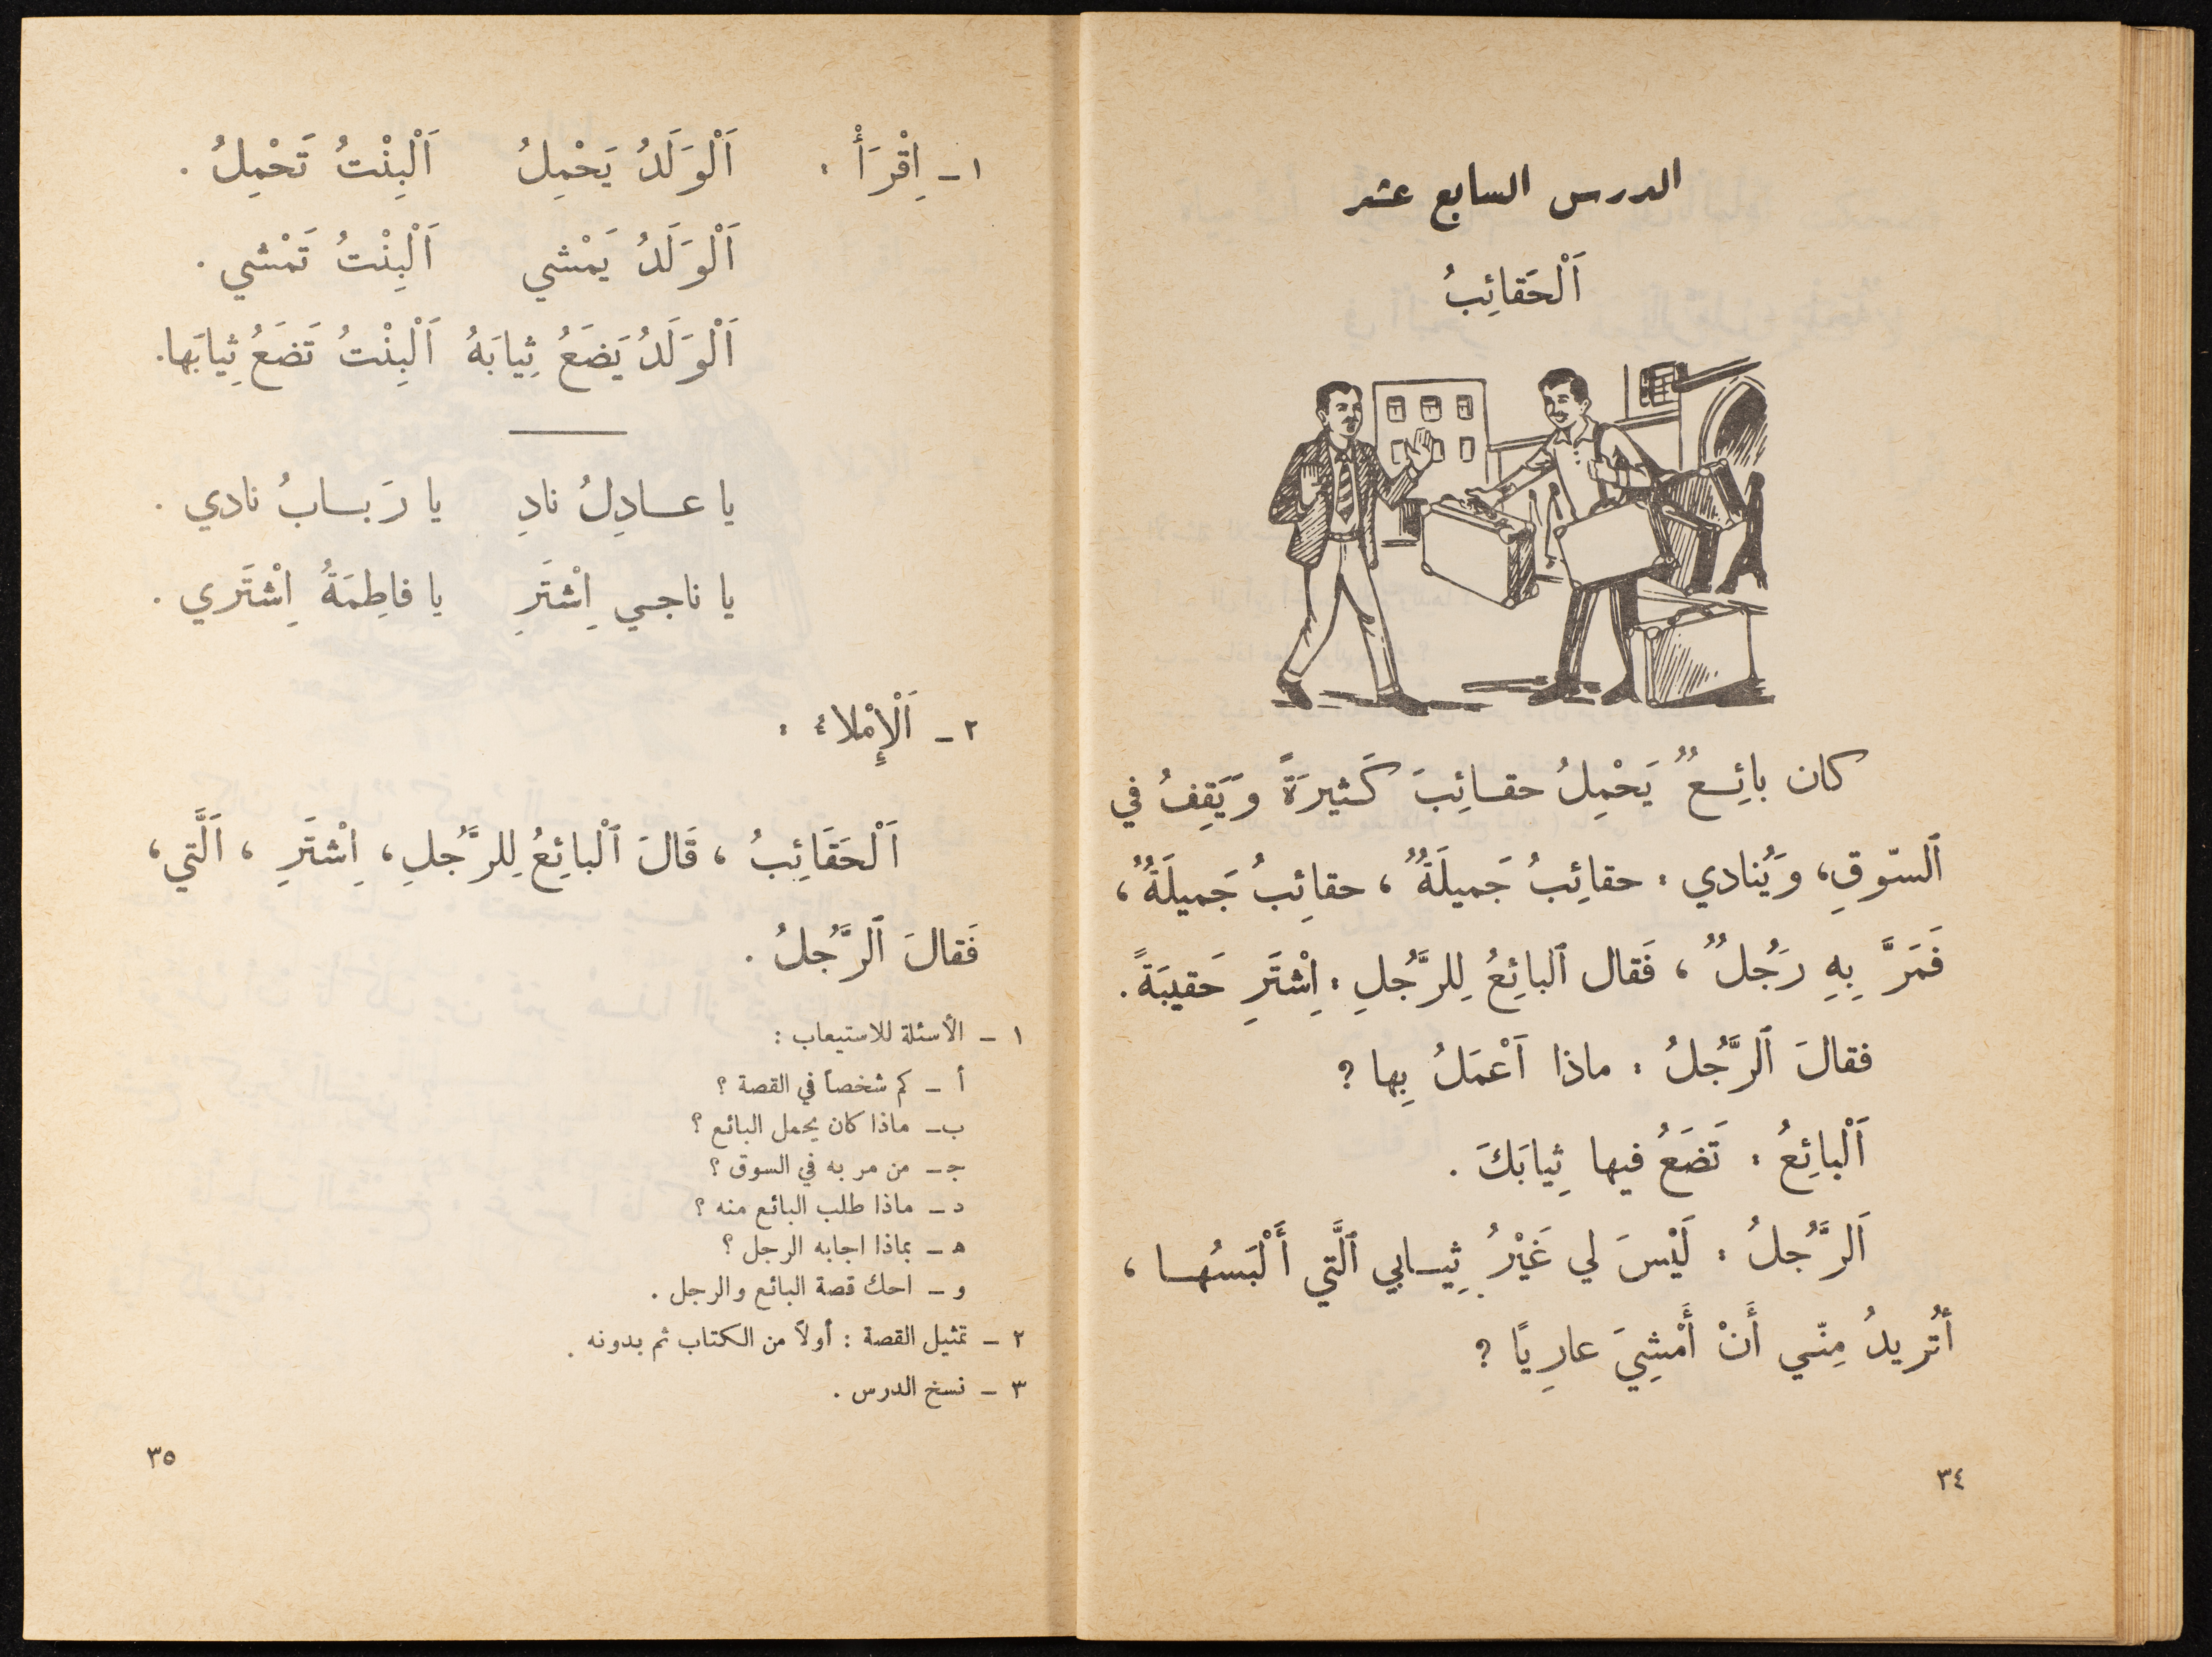 الدرس السابع عشر
اَلْحَقائِبُ
كان بائِـعٌ يَحْمِلُ حقـائِبَ كَـثيرَةً وَيَقِفُ في
ٱلسّوقِ، وَيُنادي : حقائِبُ جَميلَةٌ ، حقائِبُ جَميلَةٌ ،
فَمَرَّ بِهِ رَجُلٌ ، فَقال ٱلبائِعُ لِلرَّجُلِ : اِشْتَرِ حَقيبَةً .
فقالَ ٱلرَّجُلُ : ماذا اَعْمَلُ بِها ؟
اَلْبائِعُ : تَضَعُ فيها ثِيابَكَ .
اَلرَّجُلُ : لَيْسَ لي غَيْرُ ثِيـابي ٱلَّتي أَلْبَسُهـا ،
أتُريدُ مِنّي أَنْ أَمْشِيَ عارِيًا ؟
٣٤
١ - اِقْرَأْ : اَلْوَلَدُ يَحْمِلُ اَلْبِنْتُ تَحْمِلُ .
اَلْوَلَدُ يَمْشي اَلْبِنْتُ تَمْشي .
اَلْوَلَدُ يَضَعُ ثِيابَهُ اَلْبِنْتُ تَضَعُ ثِيابَها .
يا عـادِلُ نادِ يا رَبـابُ نادي .
يا ناجي اِشْتَرِ يا فاطِمَةُ اِشْتَري .
٢ - اَلْإِمْلاء :
اَلْحَقَائِبُ ، قَالَ ٱلْبائِعُ لِلرَّجُلِ ، اِشْتَرِ ، اَلَّتي ،
فَقالَ ٱلرَّجُلُ .
١ - الأسئلة للاستيعاب :
أ - كم شخصاً في القصة ؟
ب - ماذا كان يحمل البائع ؟
جـ - من مر به في السوق ؟
د - ماذا طلب البائع منه ؟
هـ - بماذا اجابه الرجل ؟
و - احك قصة البائع والرجل .
٢ - تمثيل القصة : أولاً من الكتاب ثم بدونه .
٣ - نسخ الدرس .
٣٥